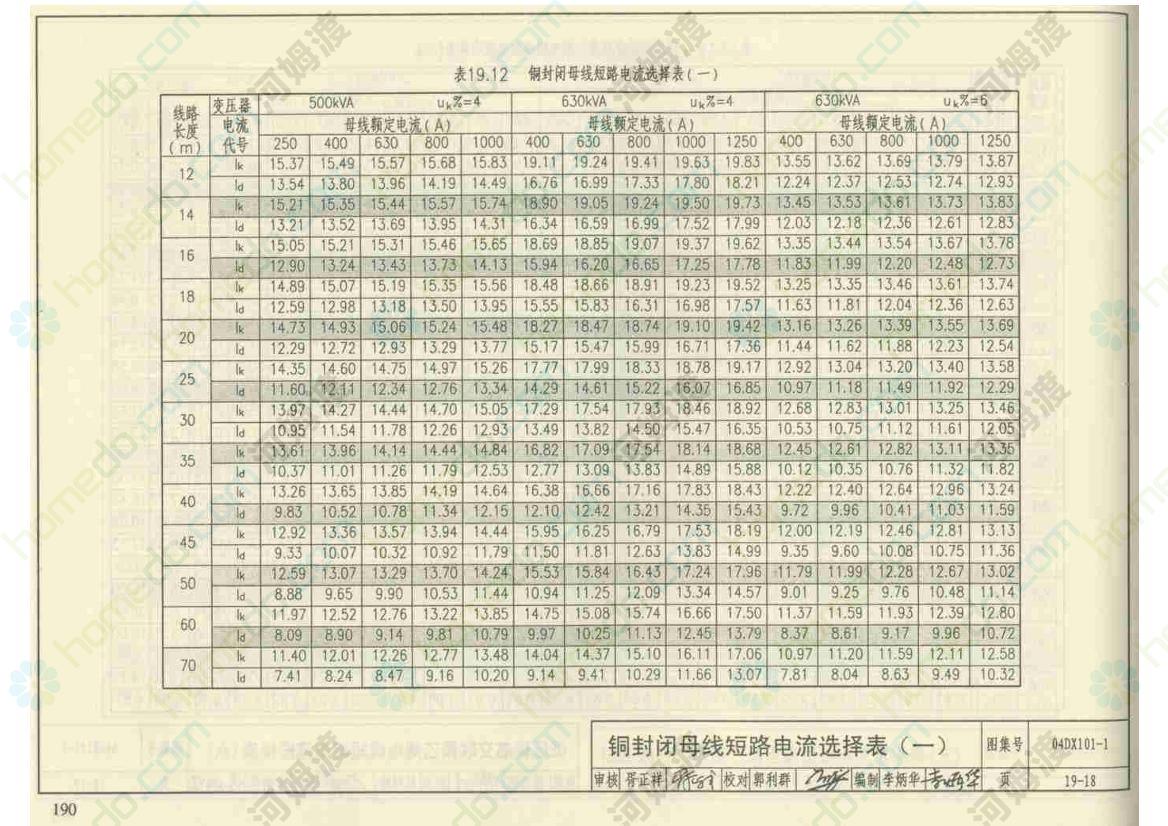 表19.12 铜封闭母线短路电流选择表(一)
线路长度(m) 变压器 500kVA uk%=4 630kVA uk%=4 630kVA uk%=6
电流代号 母线额定电流(A) 母线额定电流(A) 母线额定电流(A)
250 400 630 800 1000 400 630 800 1000 1250 400 630 800 1000 1250
12 Ik 15.37 15.49 15.57 15.68 15.83 19.11 19.24 19.41 19.63 19.83 13.55 13.62 13.69 13.79 13.87
Id 13.54 13.80 13.96 14.19 14.49 16.76 16.99 17.33 17.80 18.21 12.24 12.37 12.53 12.74 12.93
14 Ik 15.21 15.35 15.44 15.57 15.74 18.90 19.05 19.24 19.50 19.73 13.45 13.53 13.61 13.73 13.83
Id 13.21 13.52 13.69 13.95 14.31 16.34 16.59 16.99 17.52 17.99 12.03 12.18 12.36 12.61 12.83
16 Ik 15.05 15.21 15.31 15.46 15.65 18.69 18.85 19.07 19.37 19.62 13.35 13.44 13.54 13.67 13.78
Id 12.90 13.24 13.43 13.73 14.13 15.94 16.20 16.65 17.25 17.78 11.83 11.99 12.20 12.48 12.73
18 Ik 14.89 15.07 15.19 15.35 15.56 18.48 18.66 18.91 19.23 19.52 13.25 13.35 13.46 13.61 13.74
Id 12.59 12.98 13.18 13.50 13.95 15.55 15.83 16.31 16.98 17.57 11.63 11.81 12.04 12.36 12.63
20 Ik 14.73 14.93 15.06 15.24 15.48 18.27 18.47 18.74 19.10 19.42 13.16 13.26 13.39 13.55 13.69
Id 12.29 12.72 12.93 13.29 13.77 15.17 15.47 15.99 16.71 17.36 11.44 11.62 11.88 12.23 12.54
25 Ik 14.35 14.60 14.75 14.97 15.26 17.77 17.99 18.33 18.78 19.17 12.92 13.04 13.20 13.40 13.58
Id 11.60 12.11 12.34 12.76 13.34 14.29 14.61 15.22 16.07 16.85 10.97 11.18 11.49 11.92 12.29
30 Ik 13.97 14.27 14.44 14.70 15.05 17.29 17.54 17.93 18.46 18.92 12.68 12.83 13.01 13.25 13.46
Id 10.95 11.54 11.78 12.26 12.93 13.49 13.82 14.50 15.47 16.35 10.53 10.75 11.12 11.61 12.05
35 Ik 13.61 13.96 14.14 14.44 14.84 16.82 17.09 17.54 18.14 18.68 12.45 12.61 12.82 13.11 13.35
Id 10.37 11.01 11.26 11.79 12.53 12.77 13.09 13.83 14.89 15.88 10.12 10.35 10.76 11.32 11.82
40 Ik 13.26 13.65 13.85 14.19 14.64 16.38 16.66 17.16 17.83 18.43 12.22 12.40 12.64 12.96 13.24
Id 9.83 10.52 10.78 11.34 12.15 12.10 12.42 13.21 14.35 15.43 9.72 9.96 10.41 11.03 11.59
45 Ik 12.92 13.36 13.57 13.94 14.44 15.95 16.25 16.79 17.53 18.19 12.00 12.19 12.46 12.81 13.13
Id 9.33 10.07 10.32 10.92 11.79 11.50 11.81 12.63 13.83 14.99 9.35 9.60 10.08 10.75 11.36
50 Ik 12.59 13.07 13.29 13.70 14.24 15.53 15.84 16.43 17.24 17.96 11.79 11.99 12.28 12.67 13.02
Id 8.88 9.65 9.90 10.53 11.44 10.94 11.25 12.09 13.34 14.57 9.01 9.25 9.76 10.48 11.14
60 Ik 11.97 12.52 12.76 13.22 13.85 14.75 15.08 15.74 16.66 17.50 11.37 11.59 11.93 12.39 12.80
Id 8.09 8.90 9.14 9.81 10.79 9.97 10.25 11.13 12.45 13.79 8.37 8.61 9.17 9.96 10.72
70 Ik 11.40 12.01 12.26 12.77 13.48 14.04 14.37 15.10 16.11 17.06 10.97 11.20 11.59 12.11 12.58
Id 7.41 8.24 8.47 9.16 10.20 9.14 9.41 10.29 11.66 13.07 7.81 8.04 8.63 9.49 10.32
铜封闭母线短路电流选择表(一) 图集号 04DX101-1
审核 胥正祥 校对 郭利群 编制 李炳华 李炳华 页 19-18
190
河姆渡
homedo.com